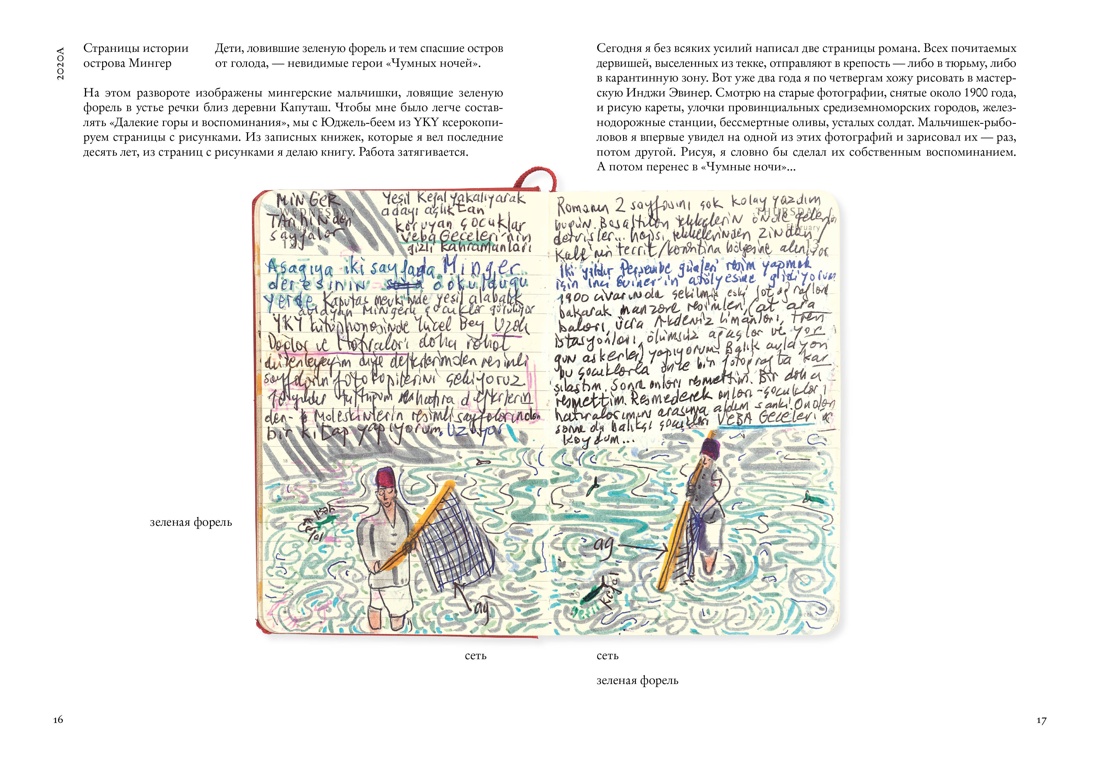 2020А
Страницы истории
острова Мингер
Дети, ловившие зеленую форель и тем спасшие остров
от голода, — невидимые герои «Чумных ночей».
На этом развороте изображены мингерские мальчишки, ловящие зеленую
форель в устье речки близ деревни Капуташ. Чтобы мне было легче состав-
лять «Далекие горы и воспоминания», мы с Юджель-беем из YKY ксерокопи-
руем страницы с рисунками. Из записных книжек, которые я вел последние
десять лет, из страниц с рисунками я делаю книгу. Работа затягивается.
Сегодня я без всяких усилий написал две страницы романа. Всех почитаемых
дервишей, выселенных из текке, отправляют в крепость — либо в тюрьму, либо
в карантинную зону. Вот уже два года я по четвергам хожу рисовать в мастер-
скую Инджи Эвинер. Смотрю на старые фотографии, снятые около 1900 года,
и рисую кареты, улочки провинциальных средиземноморских городов, желез-
нодорожные станции, бессмертные оливы, усталых солдат. Мальчишек-рыбо-
ловов я впервые увидел на одной из этих фотографий и зарисовал их — раз,
потом другой. Рисуя, я словно бы сделал их собственным воспоминанием.
А потом перенес в «Чумные ночи»...
MİNGER
TARihinden
sayfalar
Yeşil Kefal yakalıyarak
adayı açlıktan
koruyan çocuklar
Veba Geceleri'nin
gizli kahramanları
Aşağıya iki sayfada Minger
deresinin döküldüğü
yerde Kaputaş mevkiinde yeşil alabalık
YKY kütüphanesinde Yücel Bey Uzak
Dağlar ve Hatıralar'ı daha rahat
düzenleyeyim diye defterlerimden resimli
sayfaların fotokopilerini çekiyoruz
10 yıldır tuttuğum hatıra defterlerin
den Moleskinlerin resimli sayfalarından
bir kitap yapıyorum. Uzuyor
Romanın 2 sayfasını çok kolay yazdım
THURSDAY
bugün. önde gelen
dervişler... hepsi, zindan/
Kale'nin bölgesine
İki yıldır Perşembe günleri resim yapmak
için İnci Eviner'in atölyesine gidiyorum
1900 civarında çekilmiş eski fotoğraflara
bakarak manzara resimleri, at ara
baları, ücra Akdeniz limanları, tren
istasyonları, ölümsüz ağaçlar ve yor
gun askerler yapıyorum. Balık avlayan
bu çocuklarla önce bir fotoğrafta kar
şılaştım. Sonra onları resmettim. Bir daha
resmettim. Resmederek onları -çocukları-
hatıralarımın arasına aldım sanki. Onları
sonra da balıkçı çocukları VEBA GECELERİ
koydum...
yeşil
kefal
ağ
ağ
kefal
зеленая форель
сеть
сеть
зеленая форель
16
17